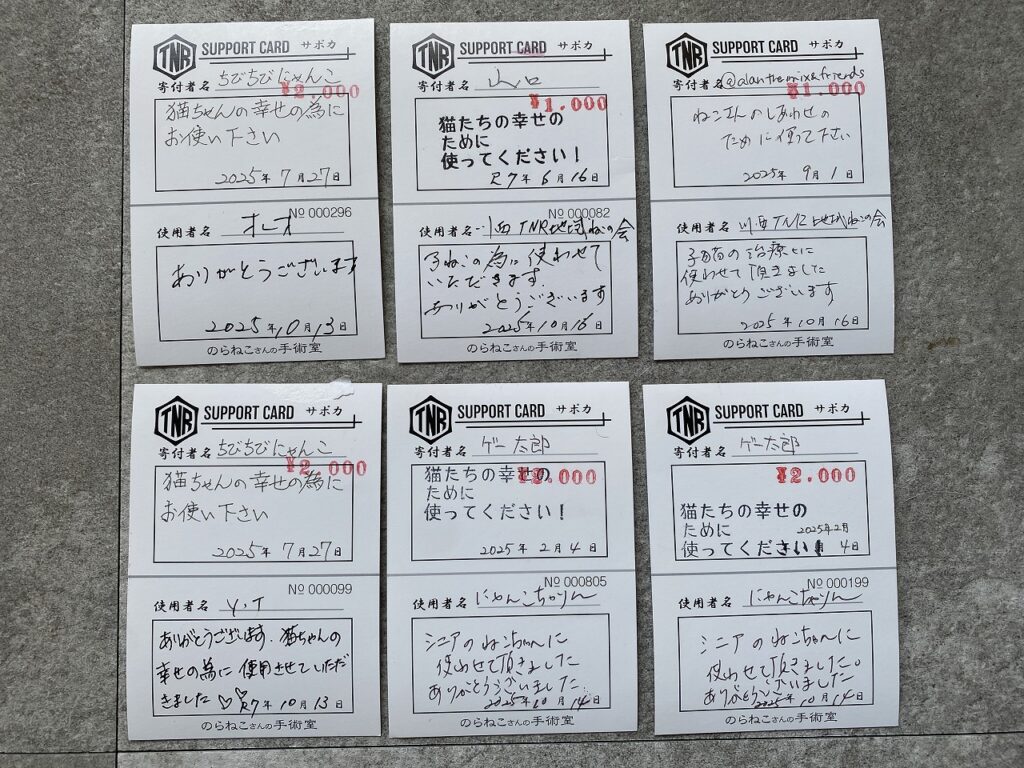 TNR SUPPORT CARD サポカ
寄付者名 ちびちびにゃんこ
¥2,000
猫ちゃんの幸せの為に
お使い下さい
2025年 7月27日
№ 000296
使用者名 オレオ
ありがとうございます
2025年10月13日
のらねこさんの手術室
TNR SUPPORT CARD サポカ
寄付者名 山口
¥1,000
猫たちの幸せの
ために
使ってください！
R7年 6月16日
№ 000082
使用者名 川西TNR地域ねこの会
子ねこの為に使わせて
いただきます.
ありがとうございます
2025年10月16日
のらねこさんの手術室
TNR SUPPORT CARD サポカ
寄付者名 @alanthemix&friends
¥1,000
ねこさんのしあわせの
ために使って下さい
2025年 9月 1日
使用者名 川西TNR地域ねこの会
子猫の治療に
使わせて頂きました
ありがとうございます
2025年10月16日
のらねこさんの手術室
TNR SUPPORT CARD サポカ
寄付者名 ちびちびにゃんこ
¥2,000
猫ちゃんの幸せの為に
お使い下さい
2025年 7月27日
№ 000099
使用者名 Y.T
ありがとうございます. 猫ちゃんの
幸せの為に使用させていただ
きました♡♡
R7年10月13日
のらねこさんの手術室
TNR SUPPORT CARD サポカ
寄付者名 ゲー太郎
¥2,000
猫たちの幸せの
ために
使ってください！
2025年 2月 4日
№ 000805
使用者名 にゃんこちゅりん
シニアのねこちゃんに
使わせて頂きました
ありがとうございました.
2025年10月14日
のらねこさんの手術室
TNR SUPPORT CARD サポカ
寄付者名 ゲー太郎
¥2,000
猫たちの幸せの
ために
使ってください！
2025年2月
4日
№ 000199
使用者名 にゃんこちゅりん
シニアのねこちゃんに
使わせて頂きました。
ありがとうございました
2025年10月14日
のらねこさんの手術室